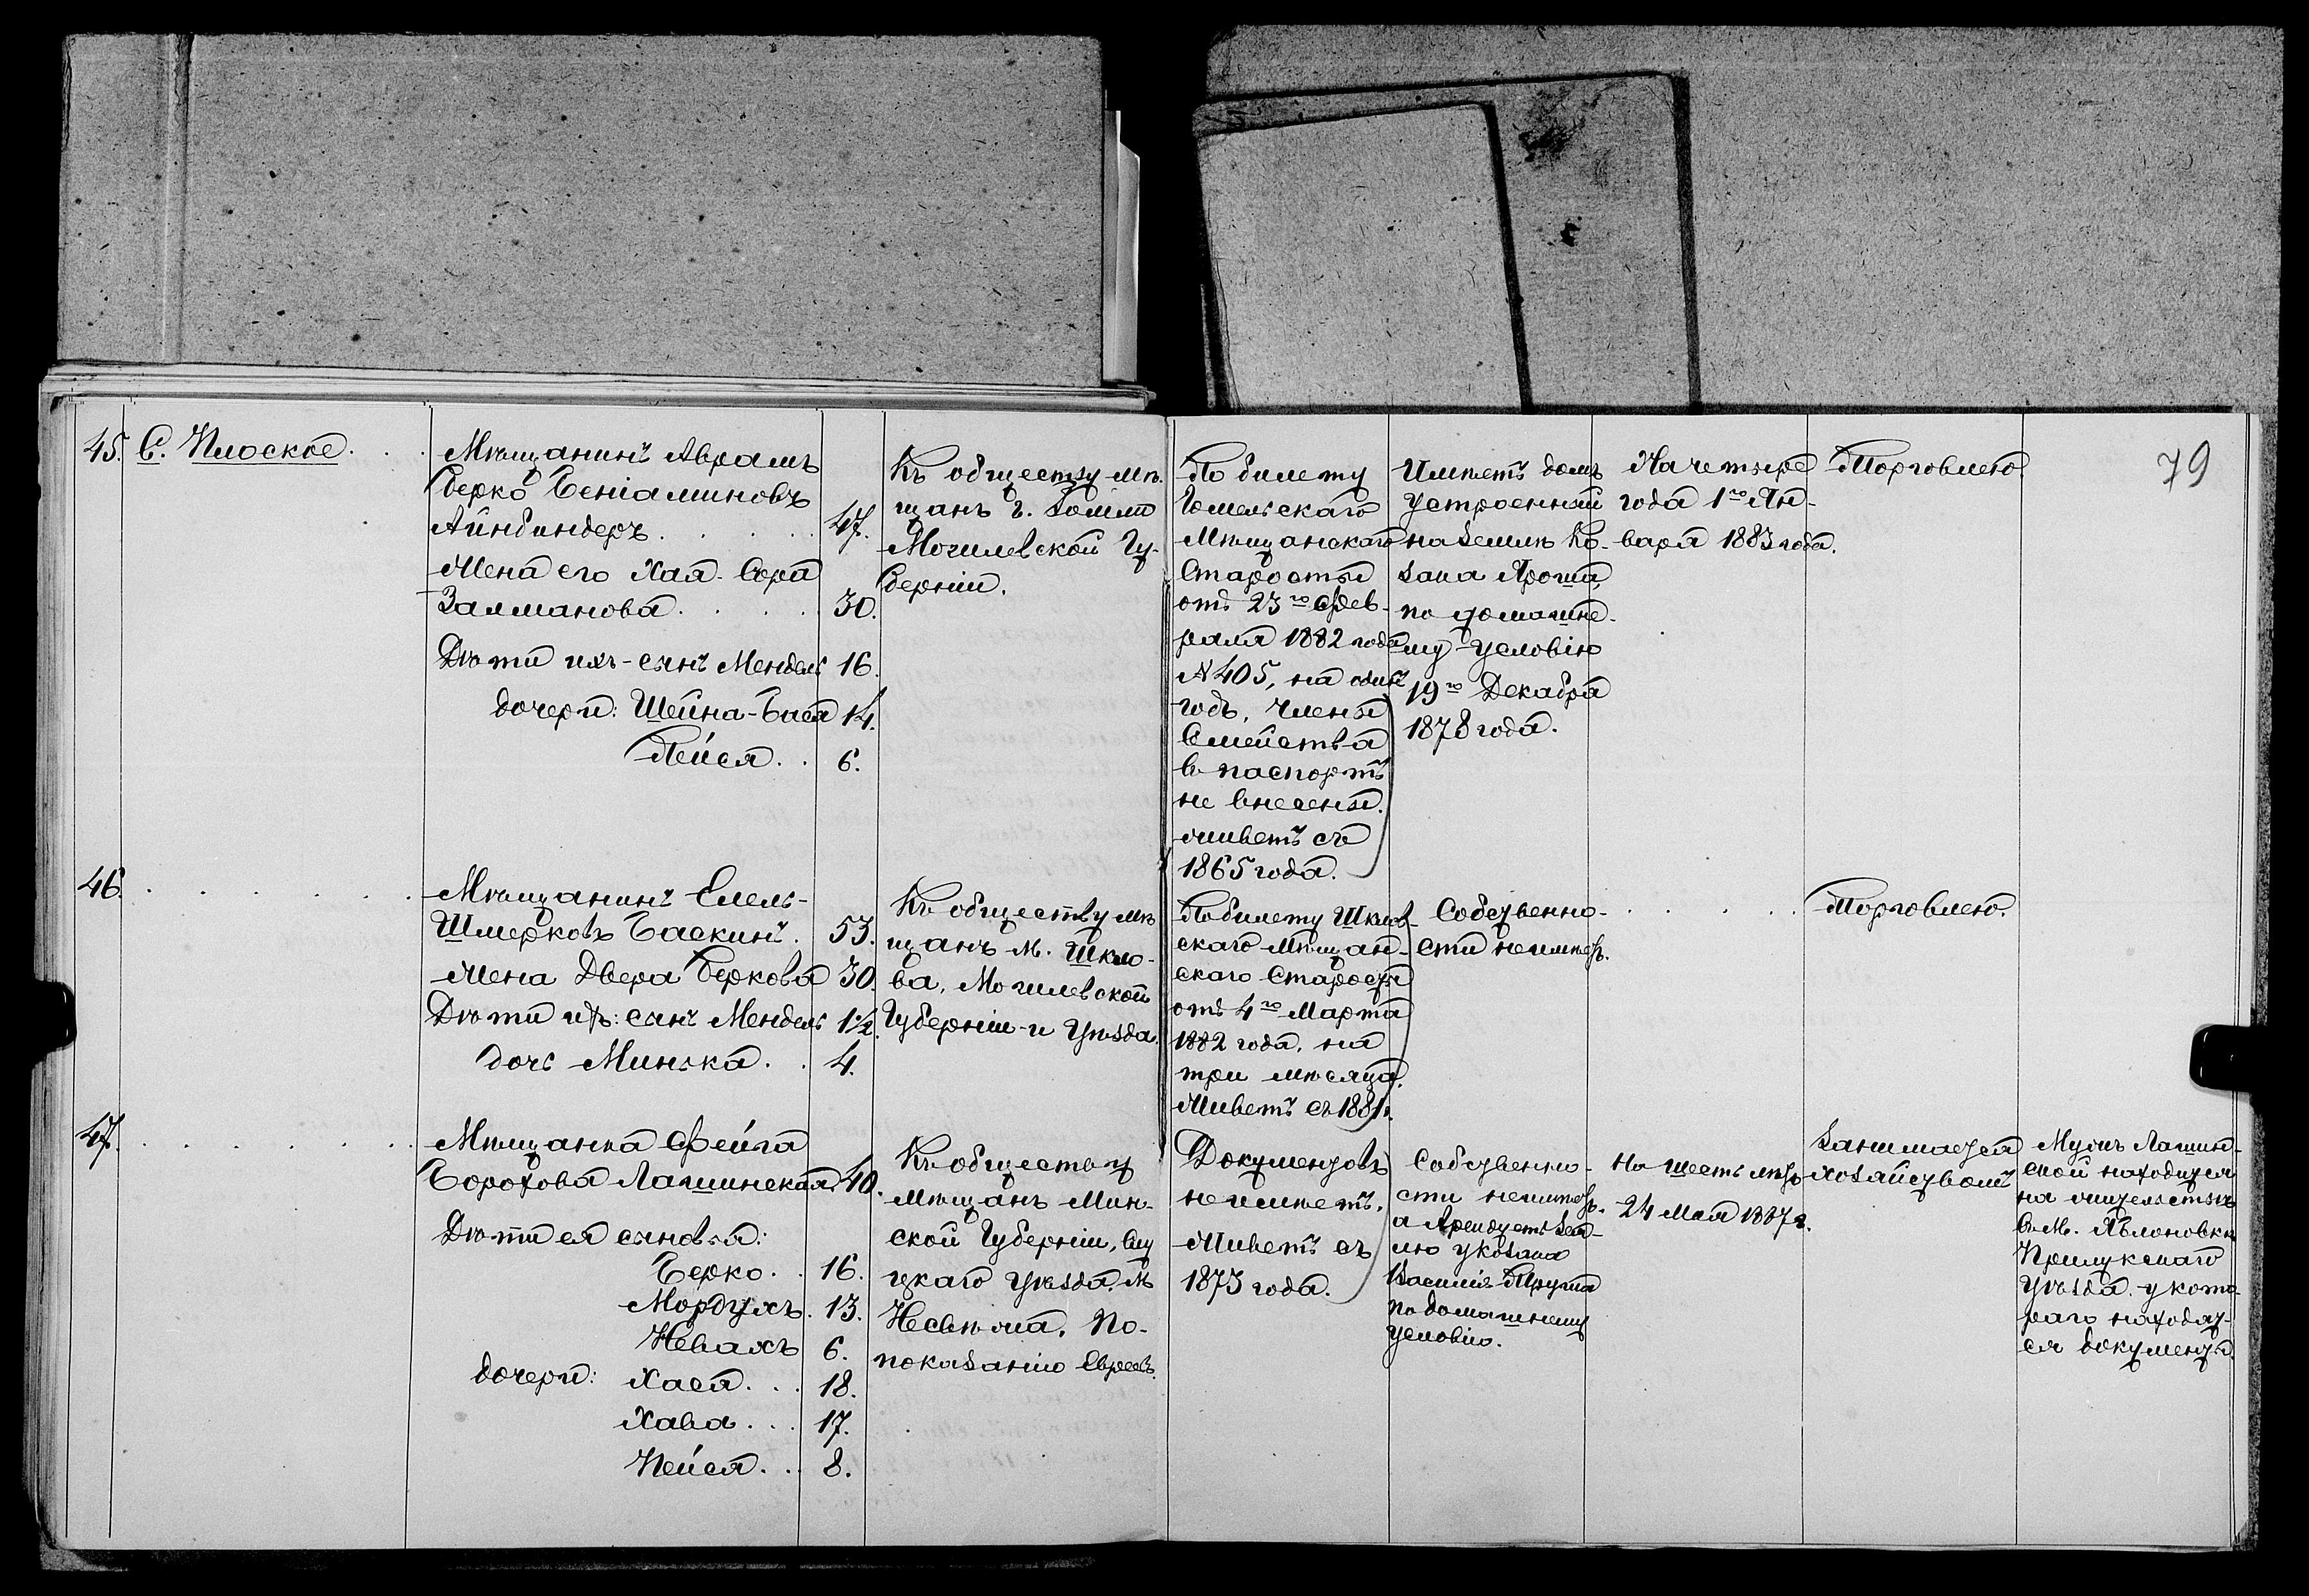 79
45. С. Плоское.
Мѣщанинъ Аврамъ
Берко Беніаминовъ
Айнбиндеръ 47.
Жена его Хая-Сора
Залманова 30.
Дѣти ихъ - сынъ Мендель 16.
дочери: Шейна-Бася 14.
Пейся 6.
Къ обществу мѣ-
щанъ г. Гомля
Могилевской Гу-
берніи.
По билету
Гомельскаго
Мѣщанскаго
Старосты
отъ 23го Фев-
раля 1882 года
№ 405, на одинъ
годъ, члены
Семейства
въ паспортъ
не внесены.
живетъ съ
1865 года.
Имѣетъ домъ
устроенный
на землѣ Ко-
зака Яроша,
по домашне-
му условію
19го Декабря
1878 года.
На четыре
года 1го Ян-
варя 1883 года.
Торговлею.
46.
Мѣщанинъ
Шмерковъ Баскинъ. 53.
Жена Двера Беркова 30.
Дѣти ихъ: сынъ Мендель 1½.
дочь Минька 4.
Къ обществу мѣ
щанъ м. Шкло-
ва, Могилевской
Губерніи и Уѣзда.
По билету Шклов-
скаго Мѣщан-
скаго Старосты
отъ 4го Марта
1882 года, на
три мѣсяца.
Живетъ съ 1881 г.
Собственно-
сти не имѣетъ.
Торговлею.
47.
Мѣщанка Фейга
Борохова Лашинская 40.
Дѣти ея сыновья:
Берко 16.
Мордухъ 13.
Невахъ 6.
дочери: Хася 18.
Хава 17.
Пейся 8.
Къ обществу
мѣщанъ Мин-
ской Губерніи, Слу
цкаго Уѣзда, М.
Несвѣжа, по-
показанію Евреевъ.
Документовъ
не имѣетъ.
Живетъ съ
1873 года.
Собственно-
сти не имѣетъ.
а Арендуетъ зем-
лю у козака
Василія
по домашнему
условію.
На шесть лѣтъ
24 Мая 1887 г.
Занимается
хозяйствомъ
Мужъ Лашин-
ской находится
на жительствѣ
въ М. Яблоновкѣ
Прилукскаго
Уѣзда, у кото-
раго находят-
ся документы.